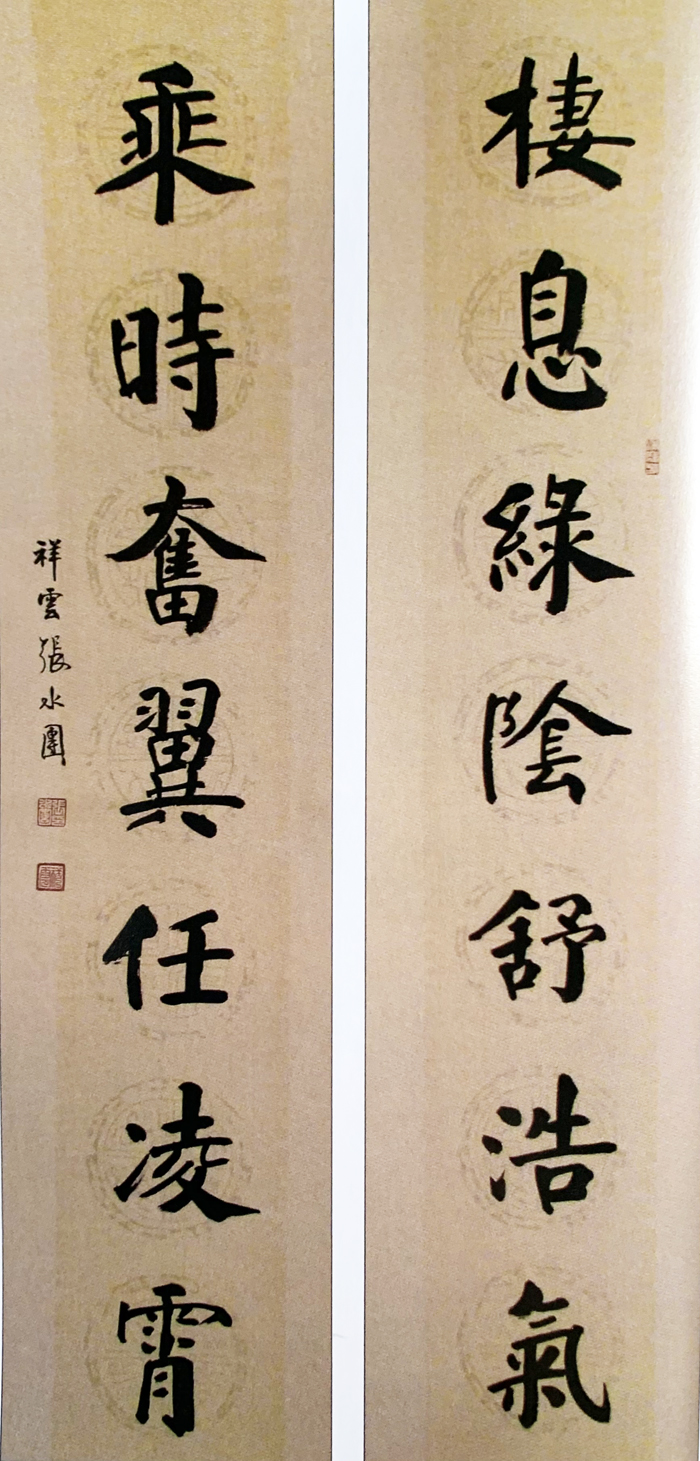 棲息綠陰舒浩氣
乘時奮翼任凌霄
祥雲張水團